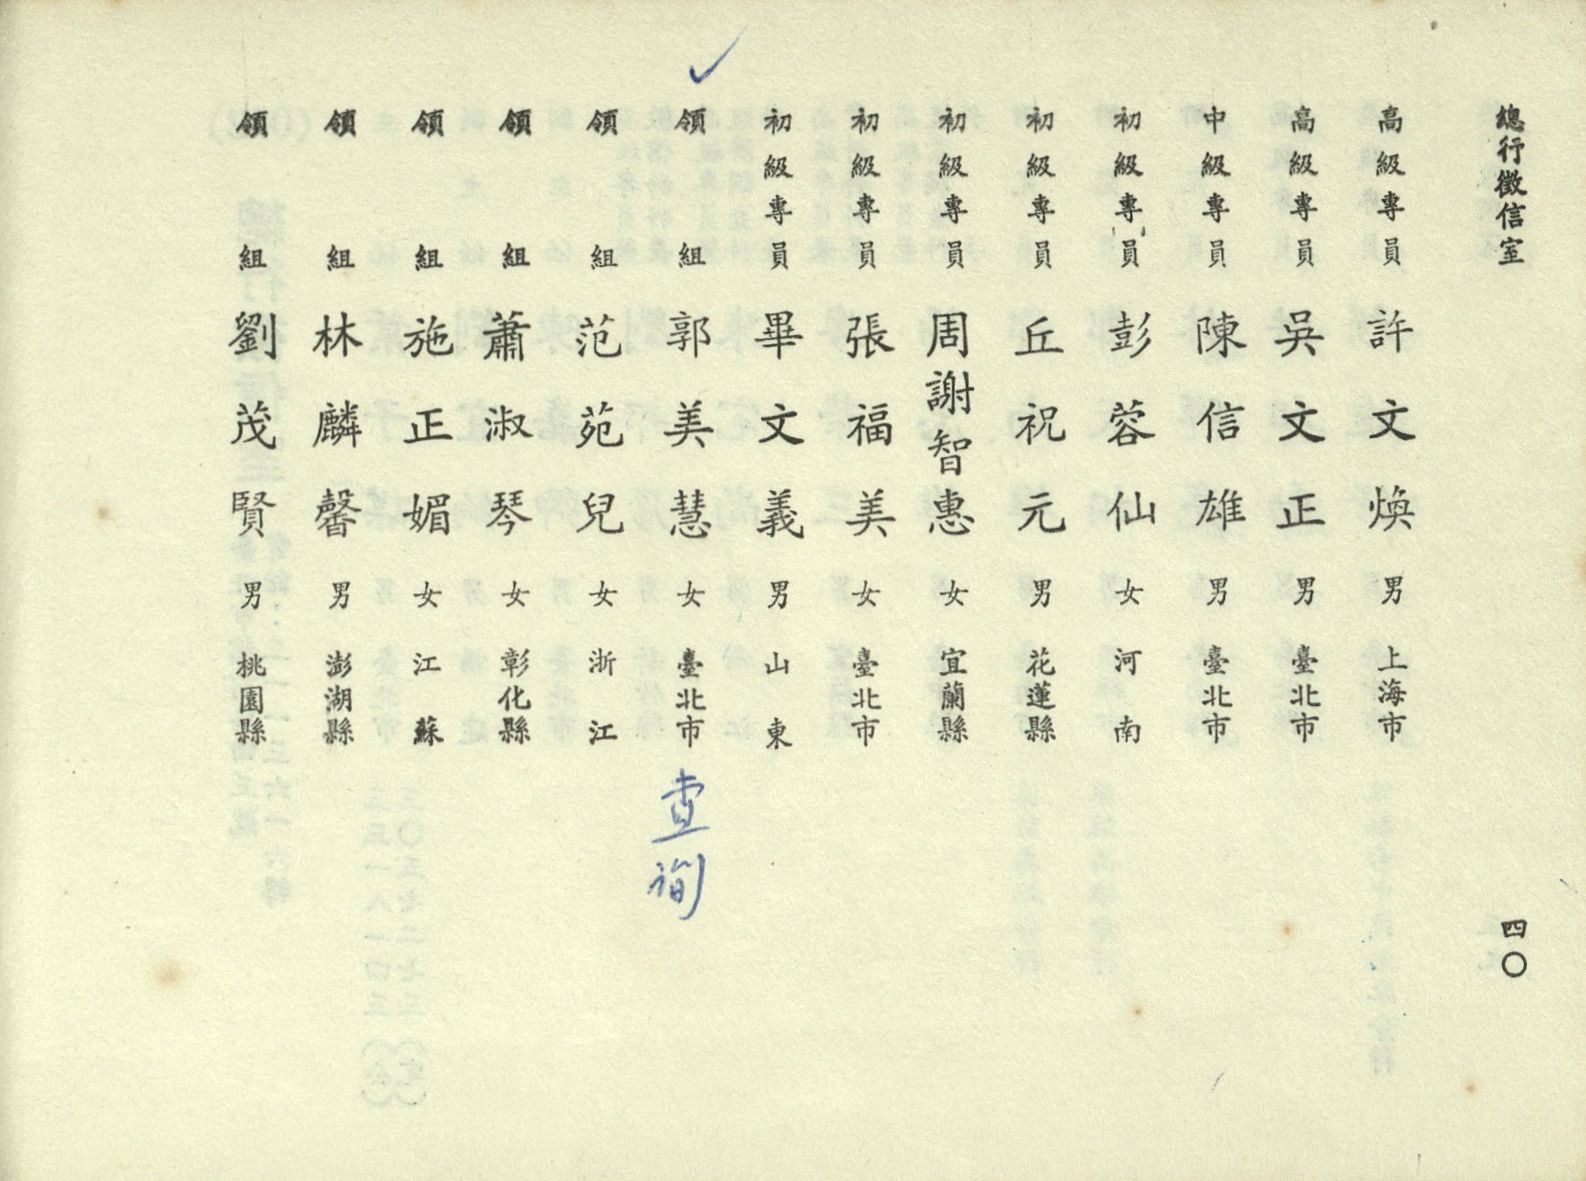 總行徵信室
四〇
高級專員 許文煥 男 上海市
高級專員 吳文正 男 臺北市
中級專員 陳信雄 男 臺北市
初級專員 彭蓉仙 女 河南
初級專員 丘祝元 男 花蓮縣
初級專員 周謝智惠 女 宜蘭縣
初級專員 張福美 女 臺北市
初級專員 畢文義 男 山東
領組 郭美慧 女 臺北市 查詢
領組 范苑兒 女 浙江
領組 蕭淑琴 女 彰化縣
領組 施正媚 女 江蘇
領組 林麟馨 男 澎湖縣
領組 劉茂賢 男 桃園縣